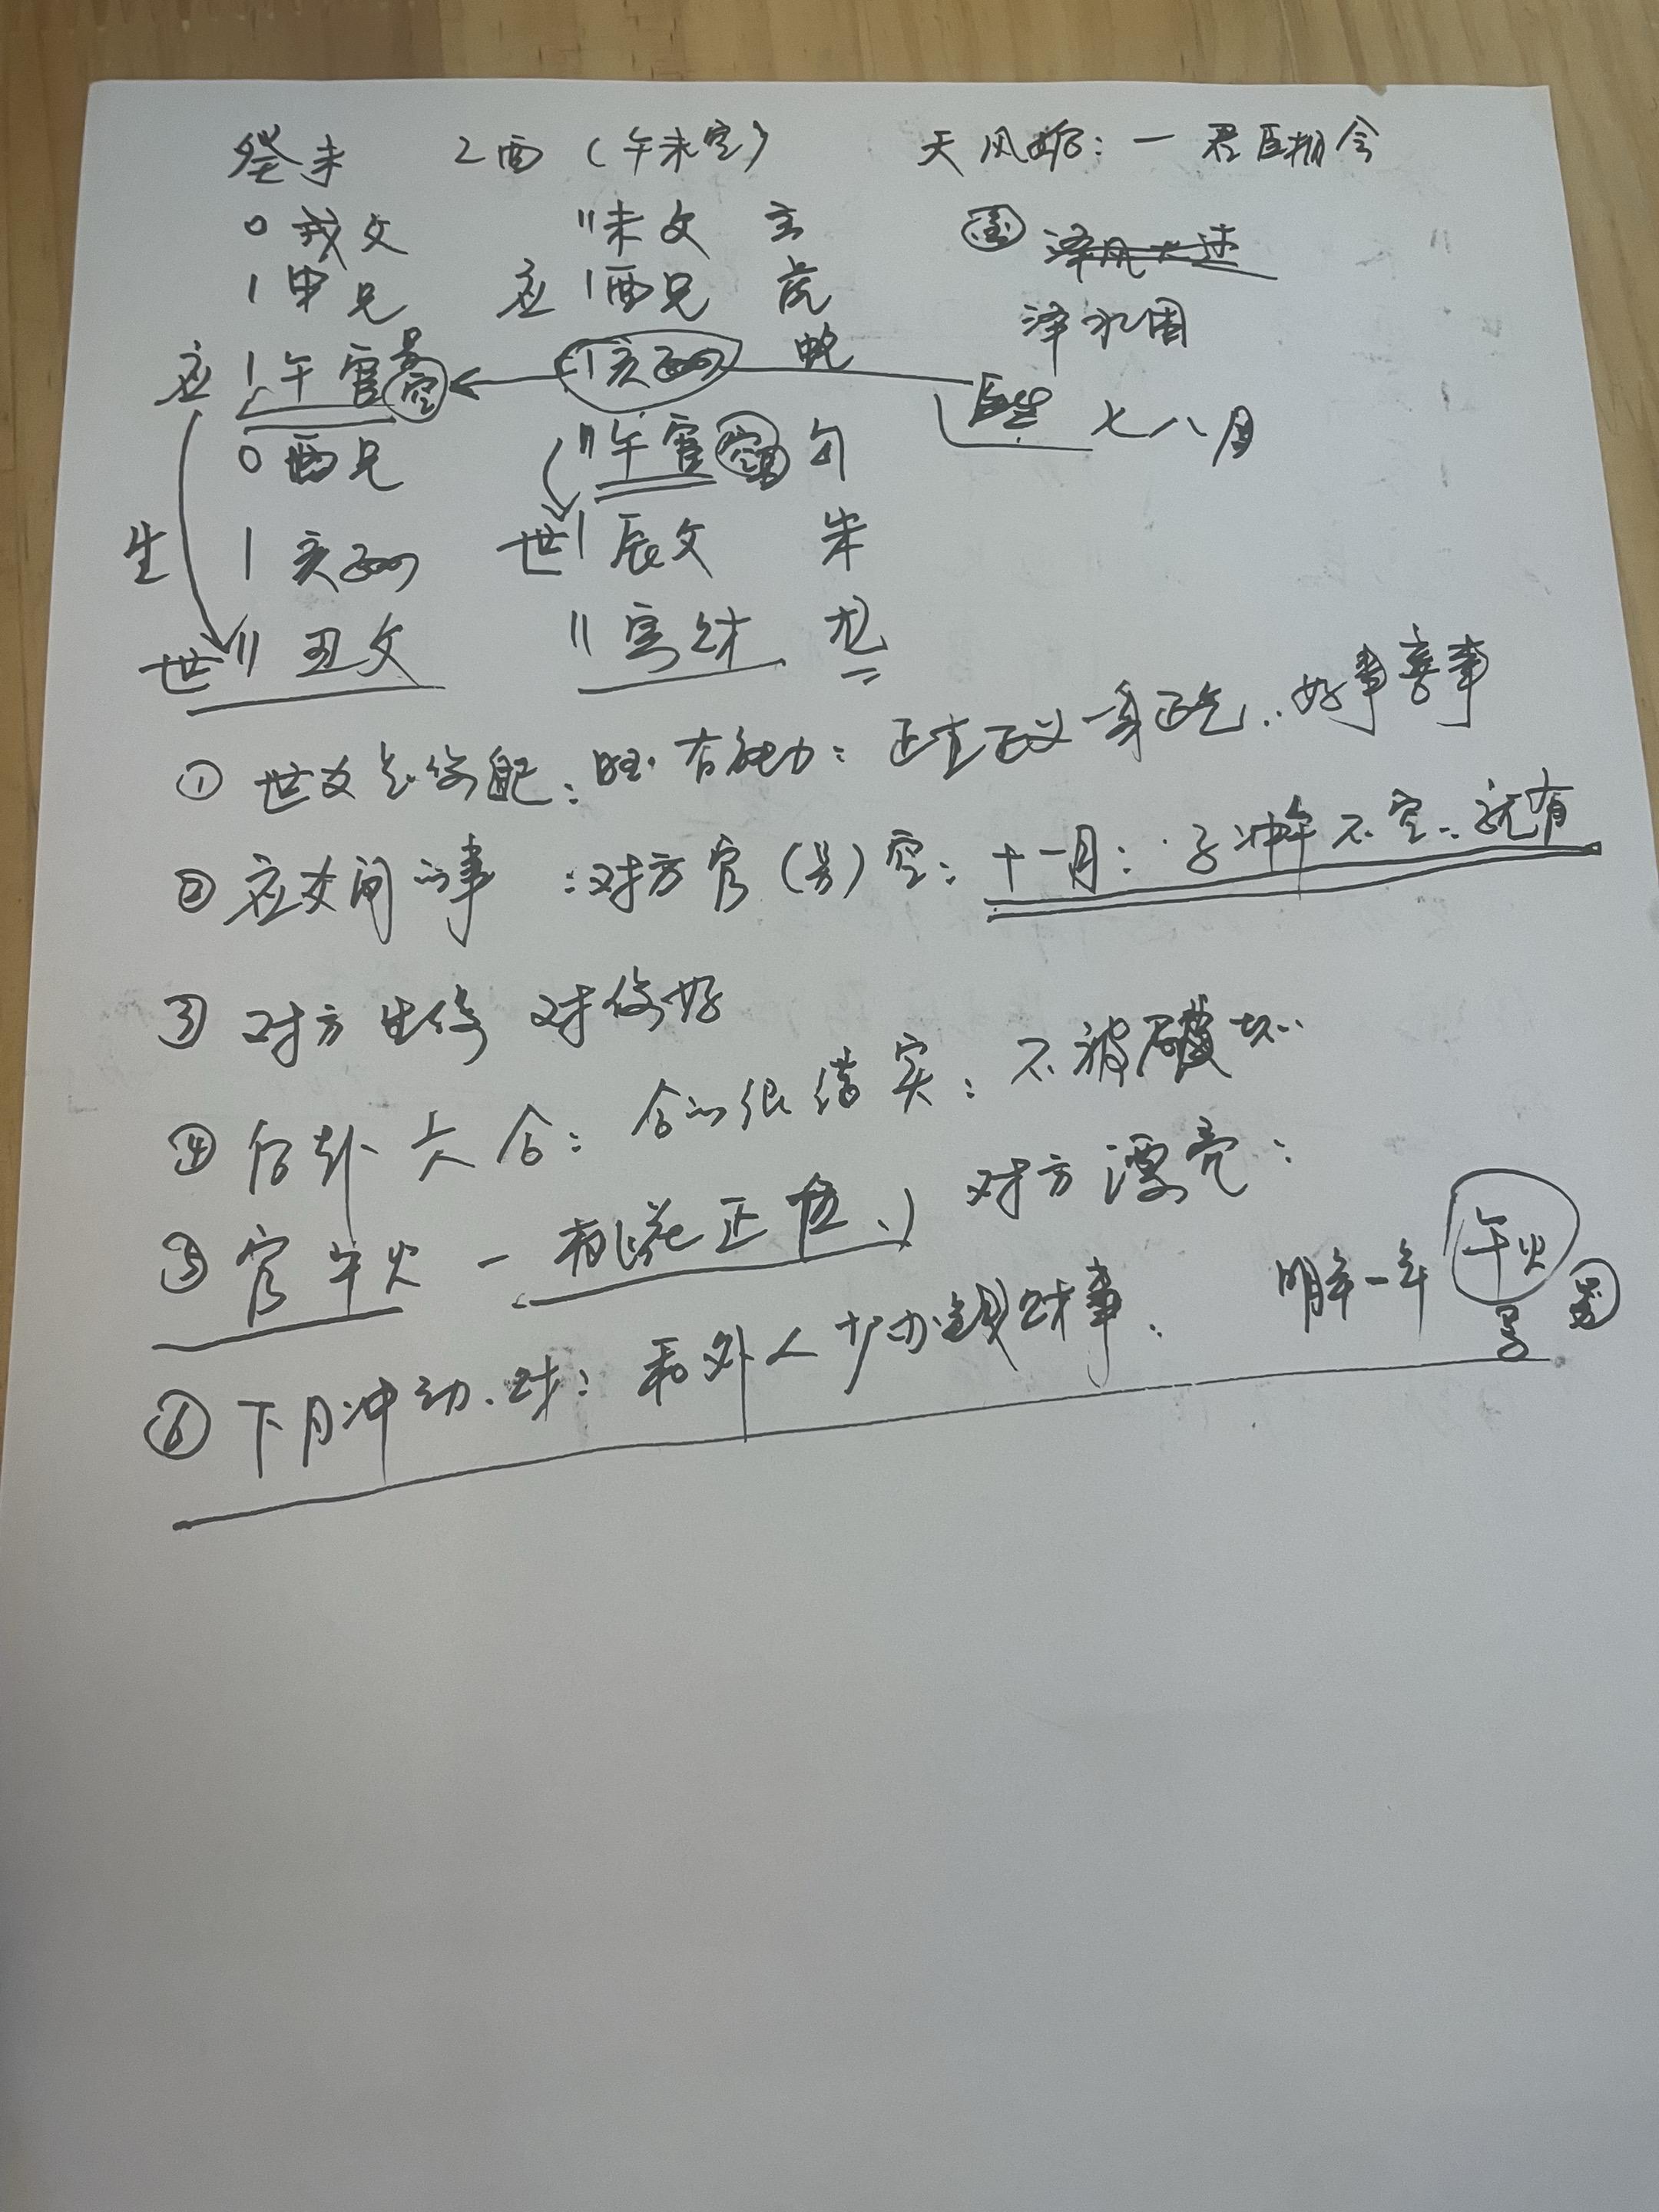 癸未 乙酉（午未空） 天风姤：一君臣相会
0 戌父 〃未父 玄 泽风大过
1 申兄 应 1酉兄 虎 泽水困
应 1午官 空 1亥 蛇 旺 七八月
0 酉兄 〃午官 空 勾
生 1 亥 世1 辰父 朱
世〃 丑父 〃寅财 龙
① 世爻 旺.有能力：正直正义一身正气..好事喜事
② 应爻问的事：对方官 空：十一月：子冲午不空..就有
③ 对方生你 对你好
④ 后卦六合：合的很结实：不被破坏..
⑤ 官午火－桃花正位、对方漂亮：
⑥ 下月冲动.财：和外人少办钱财事. 明年一年 午火